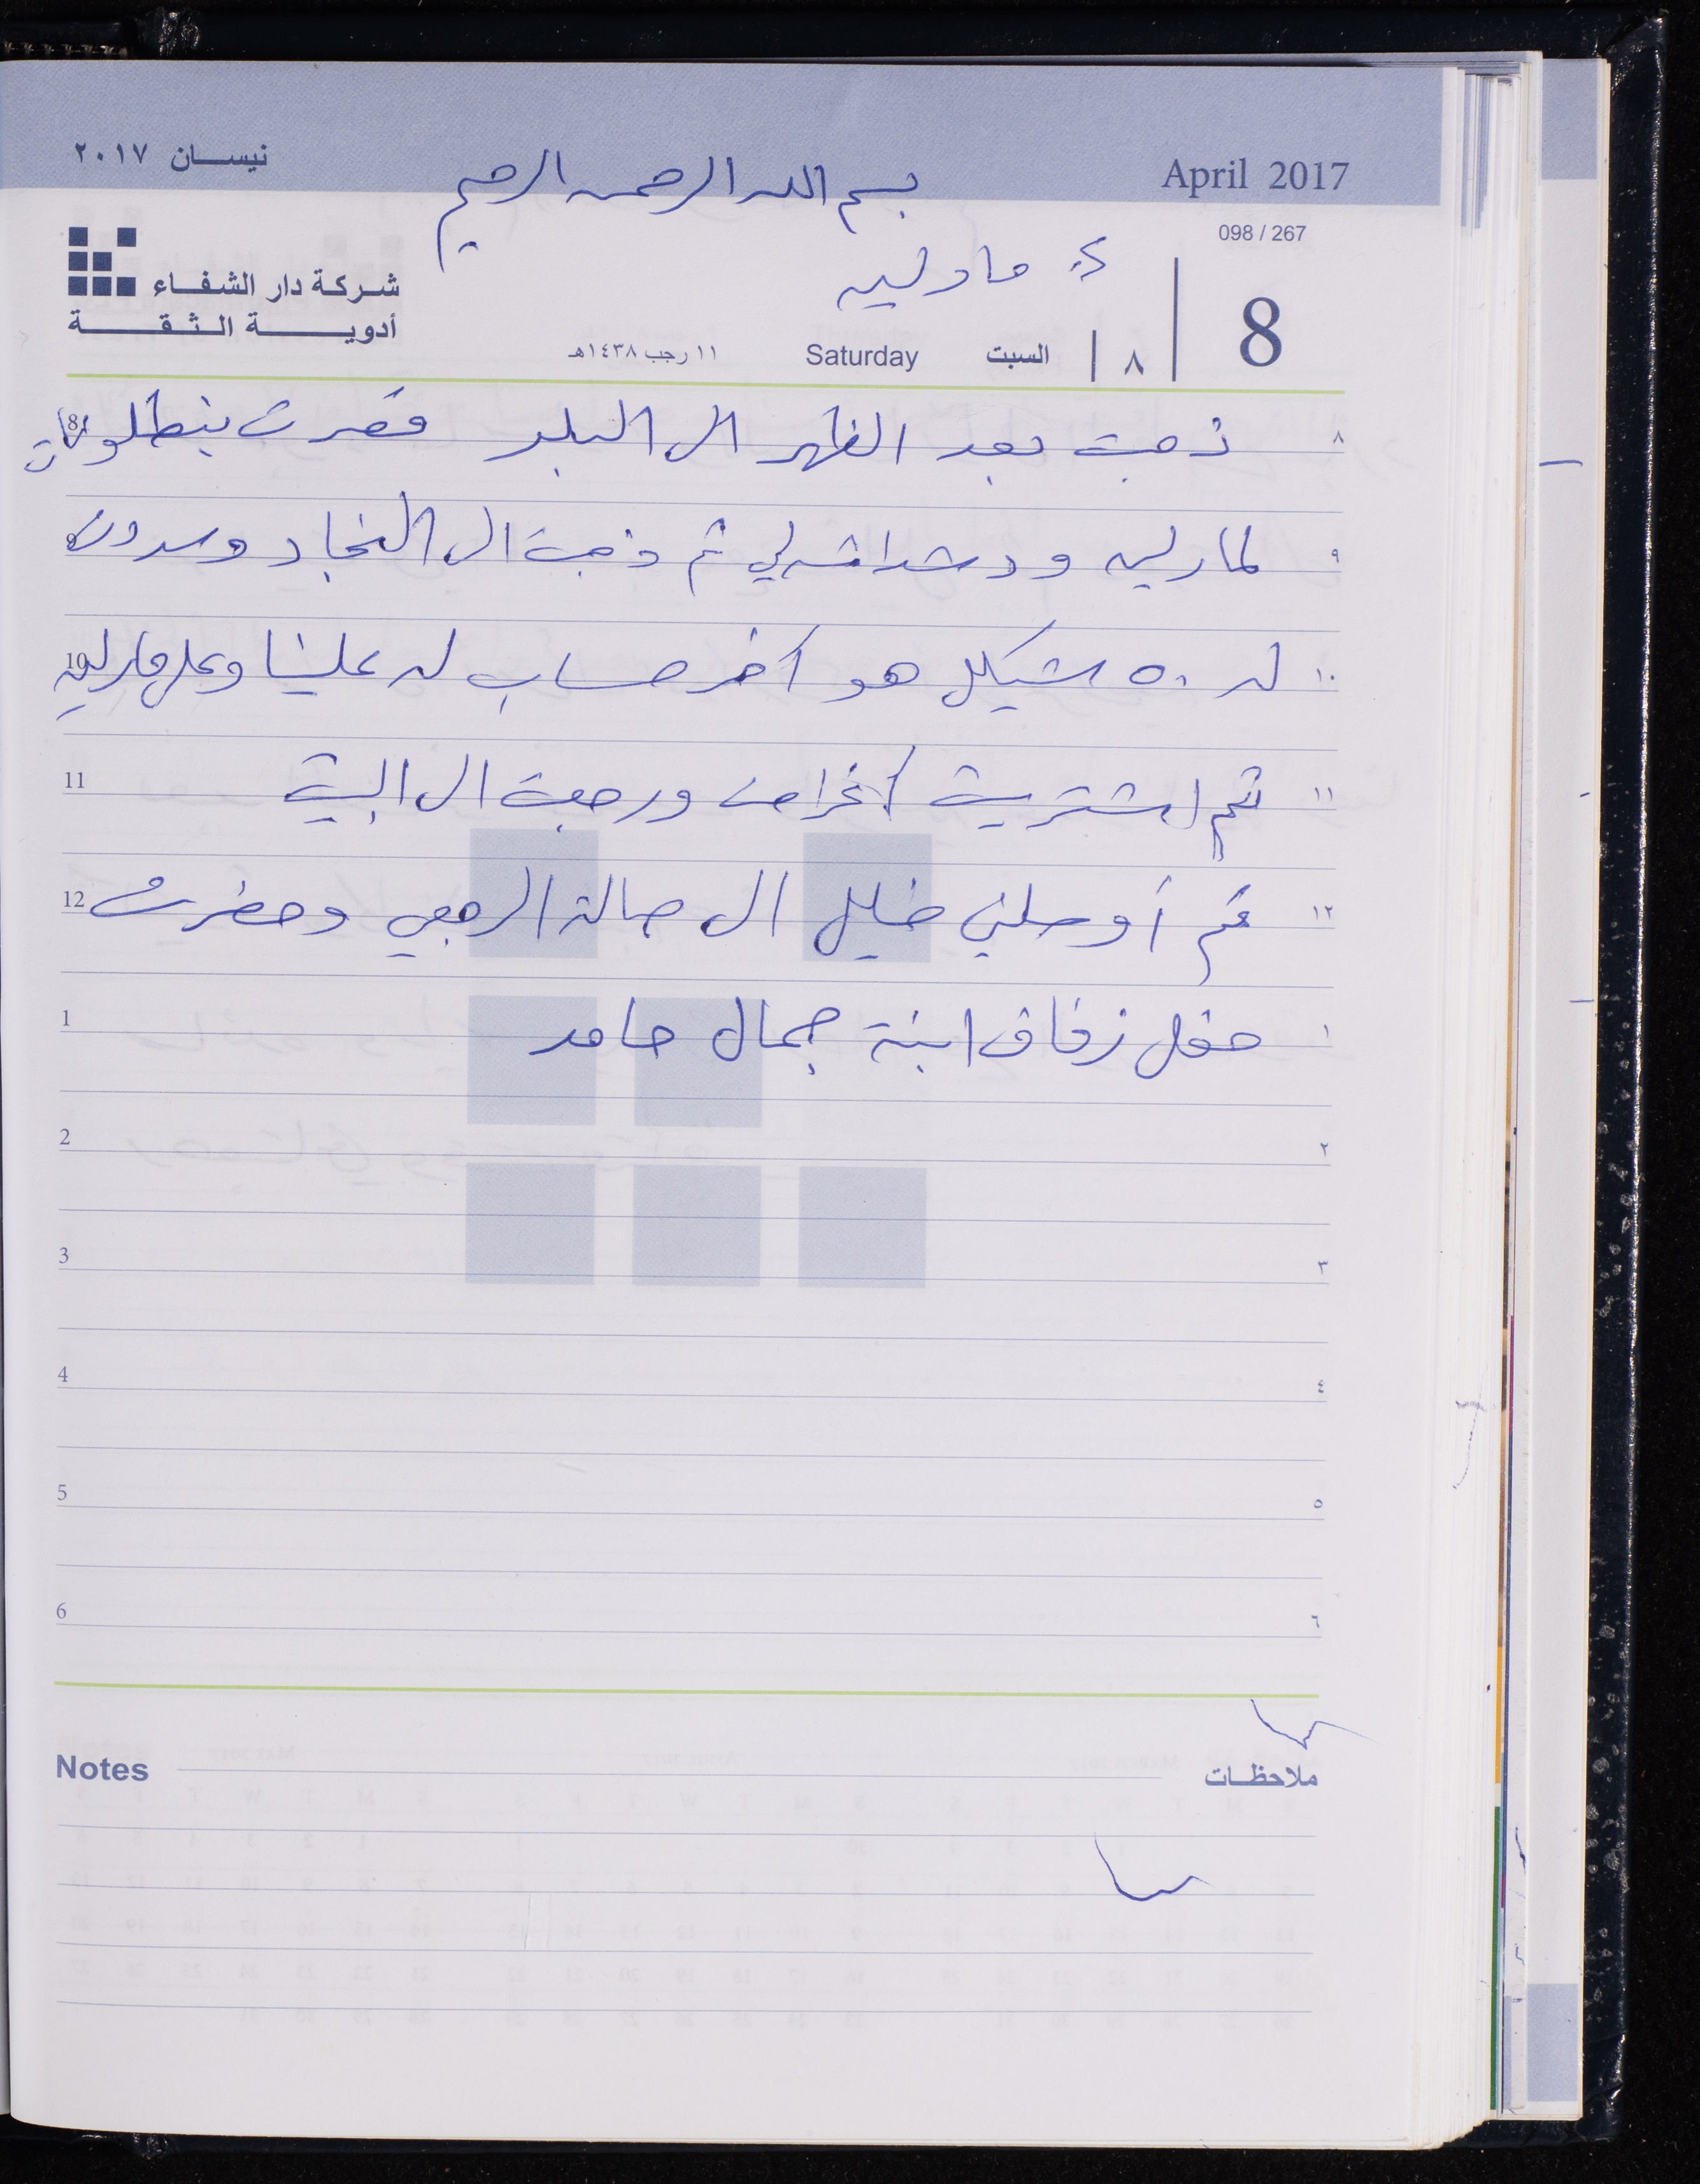 نيسان ٢٠١٧
April 2017
بسم الله الرحمن الرحيم
098 / 267
مادلين
شركة دار الشفاء
أدوية الثقة
8
٨
السبت
Saturday
١١ رجب ١٤٣٨هـ
٨ ذهبت بعد الظهر الى البلد فقصرت بنطلونات 8
٩ لمادلين ودشداشه لي ثم ذهبت الى النجار وسددت 9
١٠ له ٥٠ شيكل هو آخر حساب له علينا وعلى مادلين 10
١١ ثم اشتريت أغراض ورجعت الى البيت 11
١٢ ثم أوصلني خليل الى صالة الرجبي وحضرت 12
١ حفل زفاف ابنة جمال حامد 1
٢ 2
٣ 3
٤ 4
٥ 5
٦ 6
Notes ملاحظات